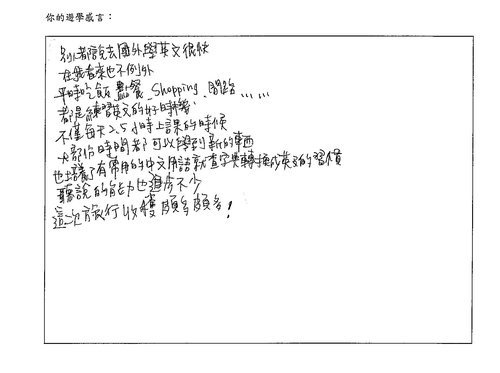 你的遊學感言：
別人都說去國外學英文很快
在我看來也不例外
平時吃飯 點餐、Shopping、問路……
都是練習英文的好時機
不僅每天2.5小時上課的時候
大部份時間都可以學到新的東西
也培養了有常用的中文用語就查字典轉換成英文的習慣
聽說的能力也進步不少
這次旅行收穫頗多頗多！